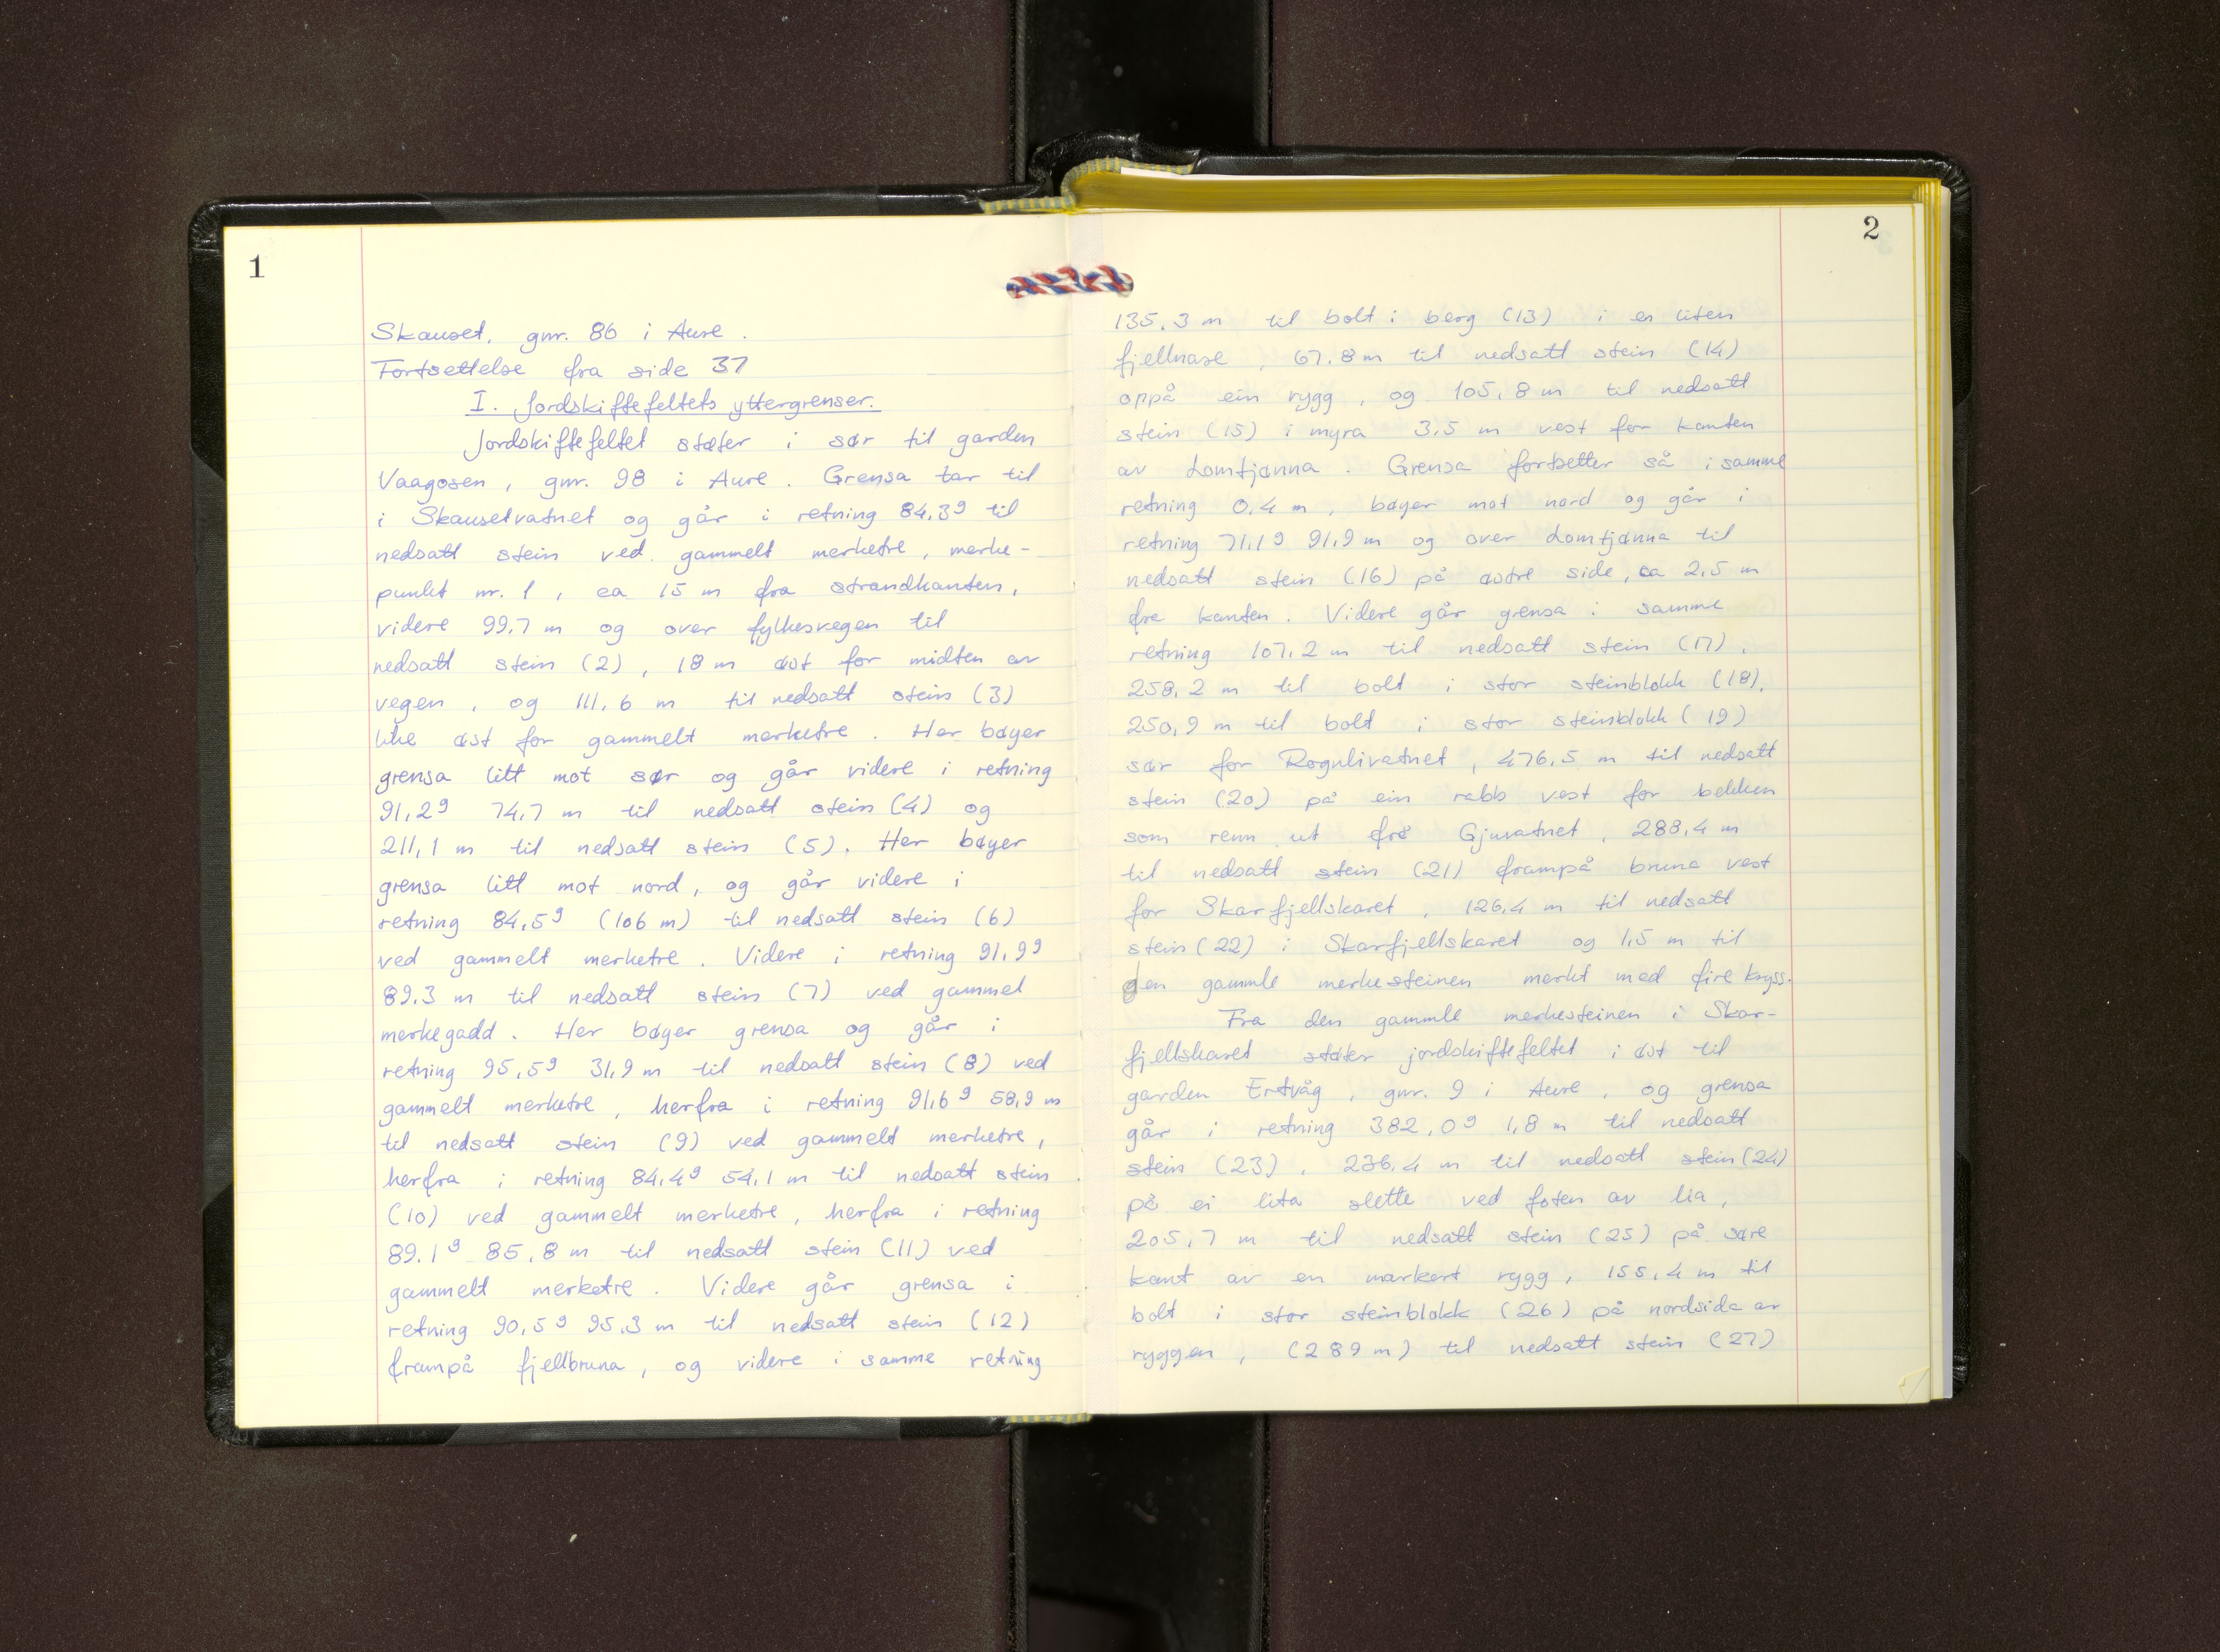 1
Skauset, gnr. 86 i Aure.
Fortsettelse fra side 37
I. Jordskiftefeltets yttergrenser.
Jordskiftefeltet støter i sør til garden
Vaagosen, gnr. 98 i Aure. Grensa tar til
i Skausetvatnet og går i retning 84,3g til
nedsatt stein ved gammelt merketre, merke-
punkt nr. 1, ca 15 m fra strandkanten,
videre 99,7 m og over fylkesvegen til
nedsatt stein (2), 18 m øst for midten av
vegen, og 111,6 m til nedsatt stein (3)
like øst for gammelt merketre. Her bøyer
grensa litt mot sør og går videre i retning
91,2g 74,7 m til nedsatt stein (4) og
211,1 m til nedsatt stein (5). Her bøyer
grensa litt mot nord, og går videre i
retning 84,5g (106 m) til nedsatt stein (6)
ved gammelt merketre. Videre i retning 91,9g
89,3 m til nedsatt stein (7) ved gammel
merkegadd. Her bøyer grensa og går i
retning 95,5g 31,9 m til nedsatt stein (8) ved
gammelt merketre, herfra i retning 91,6g 58,9 m
til nedsatt stein (9) ved gammelt merketre,
herfra i retning 84,4g 54,1 m til nedsatt stein
(10) ved gammelt merketre, herfra i retning
89,1g 85,8 m til nedsatt stein (11) ved
gammelt merketre. Videre går grensa i
retning 90,5g 95,3 m til nedsatt stein (12)
frampå fjellbruna, og videre i samme retning
2
135,3 m til bolt i berg (13) i en liten
fjellnase, 67,8 m til nedsatt stein (14)
oppå ein rygg, og 105,8 m til nedsatt
stein (15) i myra 3,5 m vest for kanten
av Lomtjønna. Grensa fortsetter så i samme
retning 0,4 m, bøyer mot nord og går i
retning 71,1g 91,9 m og over Lomtjønna til
nedsatt stein (16) på østre side, ca 2,5 m
fra kanten. Videre går grensa i samme
retning 107,2 m til nedsatt stein (17),
258,2 m til bolt i stor steinblokk (18),
250,9 m til bolt i stor steinblokk (19)
sør for Rognlivatnet, 476,5 m til nedsatt
stein (20) på ein rabb vest for bekken
som renn ut frå Gjuvatnet, 288,4 m
til nedsatt stein (21) frampå bruna vest
for Skarfjellskaret, 126,4 m til nedsatt
stein (22) i Skarfjellskaret og 1,5 m til
den gamle merkesteinen merkt med fire kryss.
Fra den gamle merkesteinen i Skar-
fjellskaret støter jordskiftefeltet i øst til
garden Ertvåg, gnr. 9 i Aure, og grensa
går i retning 382,0g 1,8 m til nedsatt
stein (23), 236,4 m til nedsatt stein (24)
på ei lita slette ved foten av lia,
205,7 m til nedsatt stein (25) på søre
kant av en markert rygg, 155,4 m til
bolt i stor steinblokk (26) på nordsida av
ryggen, (289 m) til nedsatt stein (27)